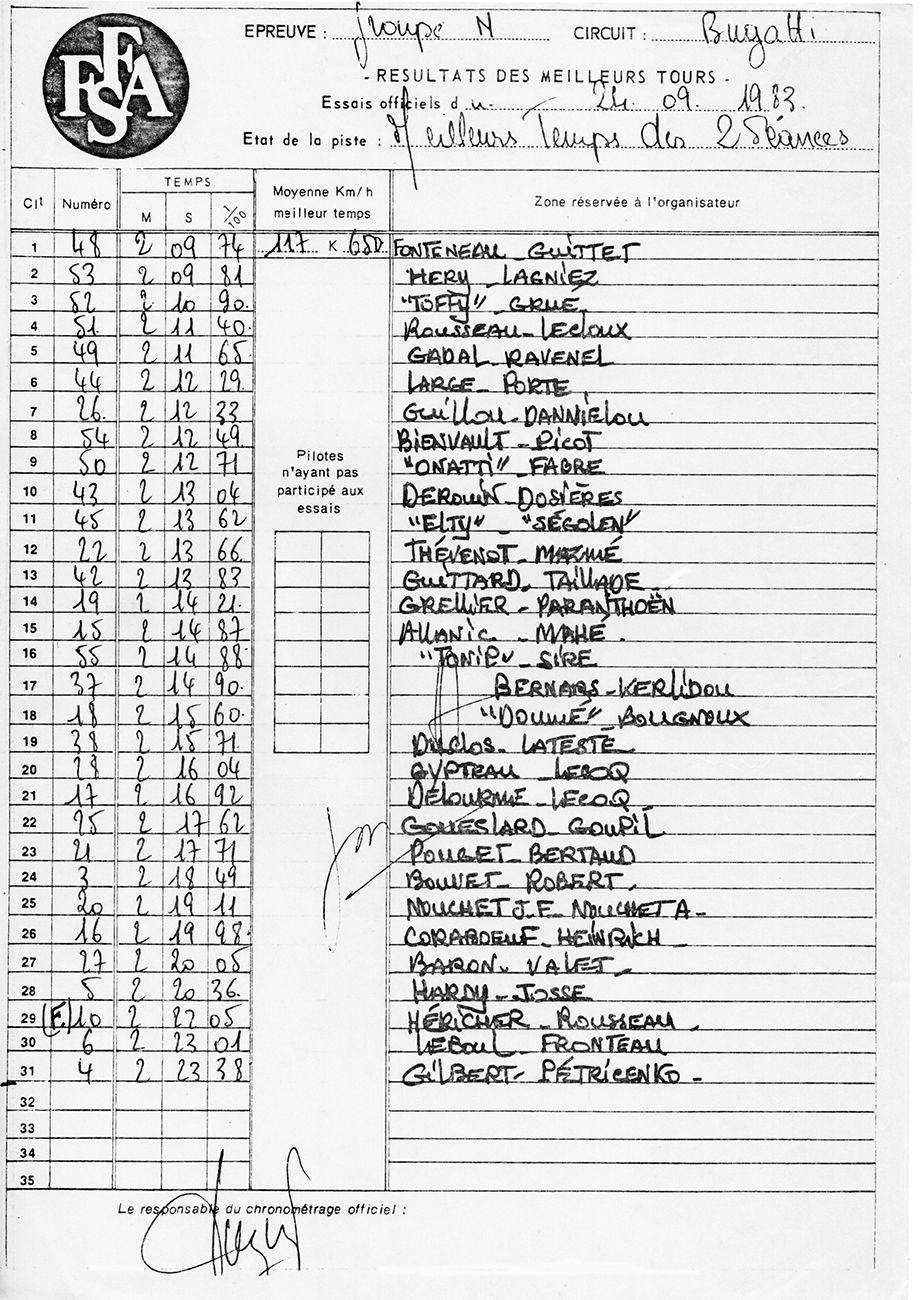 FFSA
EPREUVE : Groupe N CIRCUIT : Bugatti
- RESULTATS DES MEILLEURS TOURS -
Essais officiels du - 24. 09. 1983.
Etat de la piste : Meilleurs Temps des 2 Séances
Clt Numéro TEMPS M S 1/100 Moyenne Km/h meilleur temps Zone réservée à l'organisateur
1 48 2 09 74 117 K 650 FONTENEAU _ GUITTET
2 53 2 09 81 HERY _ LAGNIEZ
3 52 2 10 90. "TOFFY" _ GRUÉ
4 51. 2 11 40. ROUSSEAU _ LECLOUX
5 49 2 11 65. GADAL _ RAVENEL
6 44 2 12 29. LARGE _ PORTE
7 26. 2 12 33 GUILLOU _ DANNIÉLOU
8 54 2 12 49. BIENVAULT _ PICOT
9 50 2 12 71 "ONATTI" _ FABRE
10 43 2 13 04 DEROUIN _ DOSIÈRES
11 45 2 13 62 "ELTY" _ "SÉGOLEN"
12 22 2 13 66. THÉVENOT _ MAZMÉ
13 42 2 13 83 GUITTARD _ TAILLADE
14 19 2 14 21. GRELLIER - PARANTHOËN
15 15 2 14 87 ALLANIC _ MAHÉ.
16 55 2 14 88 _ SIRE
17 37 2 14 90. BERNARS - KERLIDOU
18 18 2 15 60. "DOUMÉ" _ BOUGNOUX
19 38 2 15 71. DUCLOS _ LATESTE
20 28 2 16 04 GYPTEAU _ LECOQ
21 17 2 16 92 DELOURME _ LECOQ
22 25 2 17 62 GOUESLARD _ GOUPIL
23 21 2 17 71 POUGET _ BERTAUD
24 3 2 18 49 BOUVET _ ROBERT.
25 20 2 19 11 NOUCHET J.F _ NOUCHET A -
26 16 2 19 98. CORABOEUF _ HEINRICH _
27 27 2 20 05 BARON _ VALET _
28 5 2 20 36. HARDY _ JOSSE
29 (F.) 10 2 22 05 HÉRICHER _ ROUSSEAU.
30 6 2 23 01 LEBOUL _ FRONTEAU
31 4 2 23 38 GILBERT - PÉTRICENKO -
32
33
34
35
Pilotes
n'ayant pas
participé aux
essais
Le responsable du chronométrage officiel :